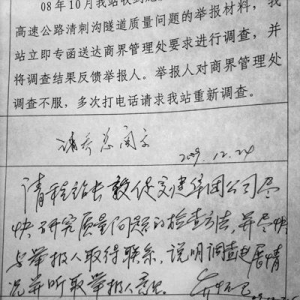 08年10月我站收到
高速公路清刺沟隧道质量问题的举报材料，我
站立即专函送达商界管理处要求进行调查，并
将调查结果反馈举报人。举报人对商界管理处
调查不服，多次打电话请求我站重新调查。
请 总阅示
2009.12.24
请程站长敦促交建集团公司尽
快研究质量问题的检查方法，并尽快
与举报人取得联系，说明调查进展情
况并听取举报人意见